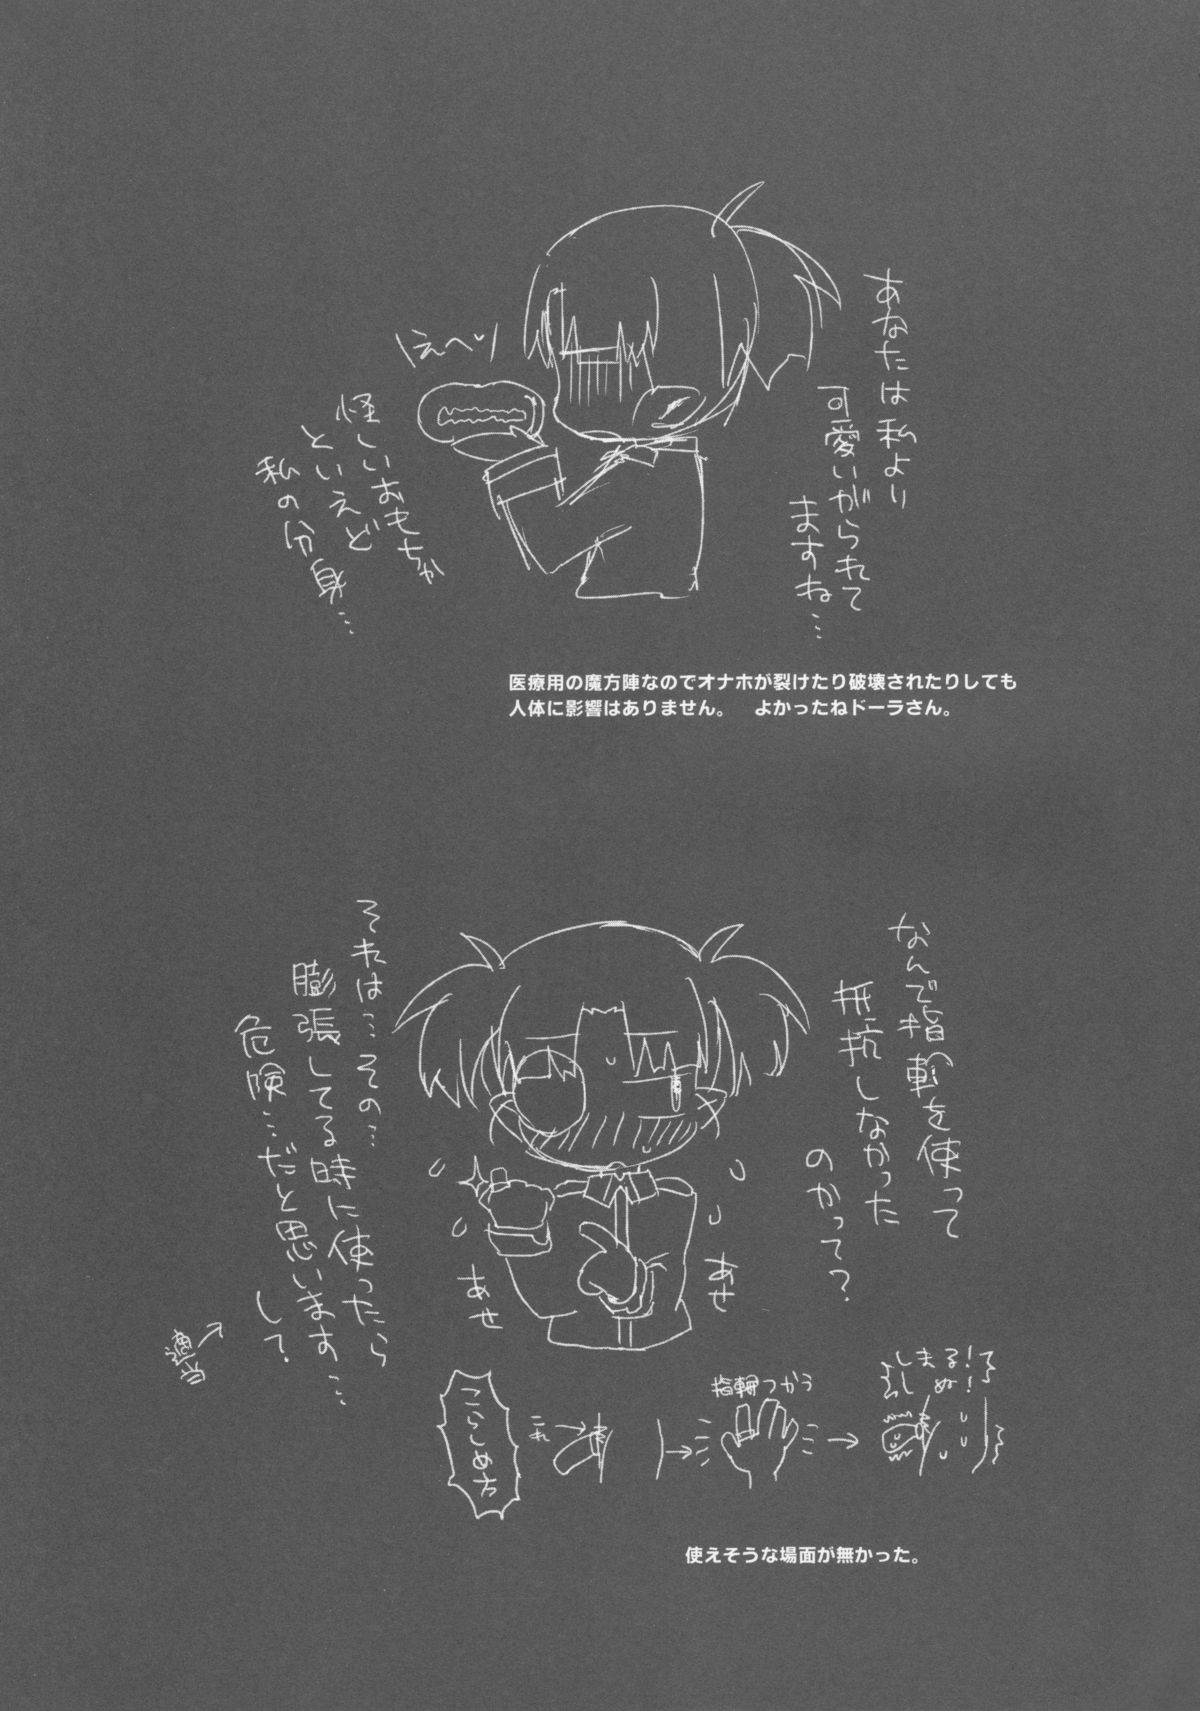 あなたは私より
可愛いがられて
ますね…
怪しいおもちゃ
といえど
私の分身…
医療用の魔方陣なのでオナホが裂けたり破壊されたりしても
人体に影響はありません。　よかったねドーラさん。
なんで指輪を使って
抵抗しなかった
のかって?
それは…その…
膨張してる時に使ったら
危険…だと思います…
して?
適当
あせ
あせ
こらしめ方
これ
指輪つかう
しまる!
しぬ!
使えそうな場面が無かった。